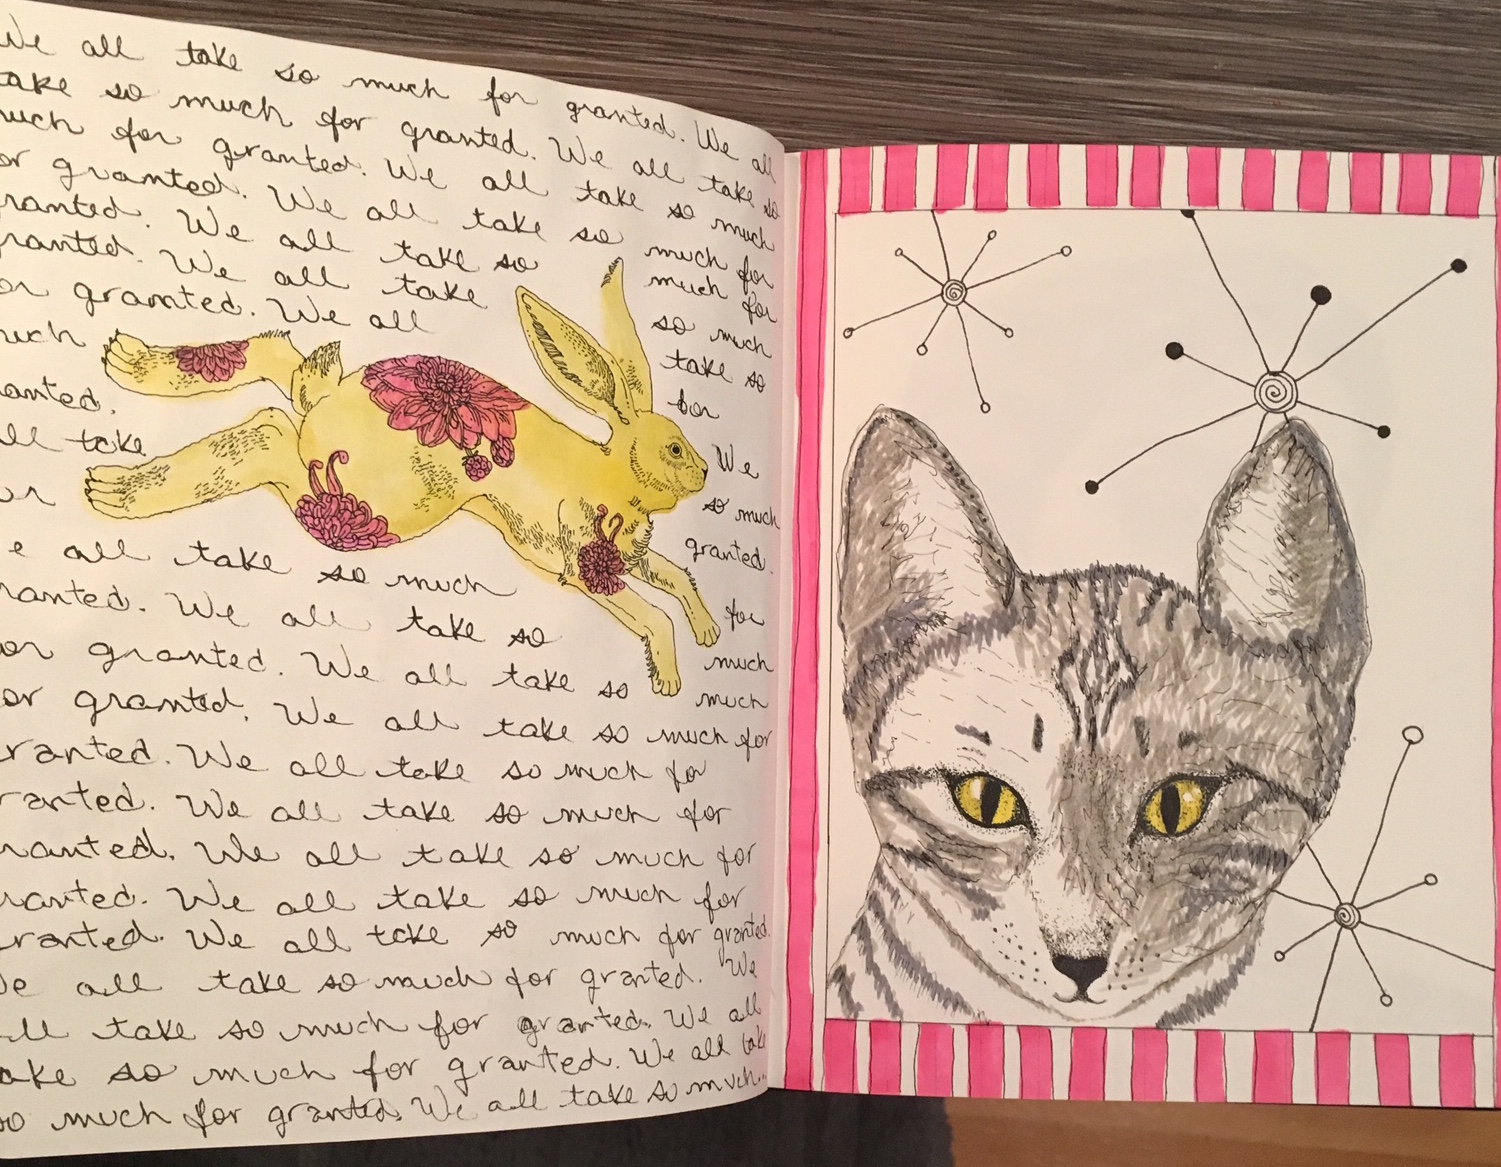 We all take so much for granted. We all
take so much for granted. We all take so
much for granted. We all take so much
for granted. We all take so much for
granted. We all take so much for
granted. We all take so much
or granted. We all take so
much
anted. for
all take We
or so much
granted.
e all take so much for
ranted. We all take so much
or granted. We all take so much
for granted. We all take so much for
ranted. We all take so much for
ranted. We all take so much for
ranted. We all take so much for
ranted. We all take so much for
ranted. We all take so much for granted.
We all take so much for granted. We
all take so much for granted. We all
take so much for granted. We all take
so much for granted. We all take so much...